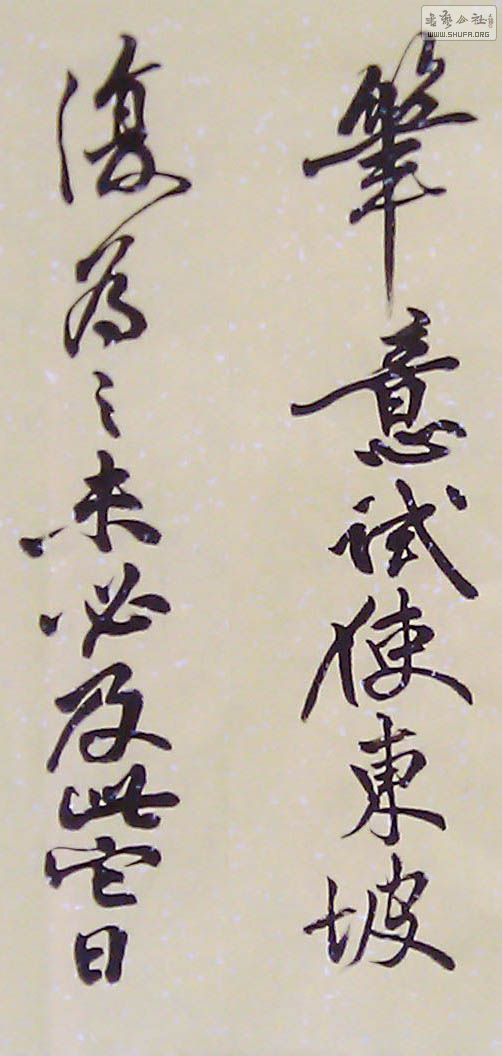 筆意試使東坡
復為之未必及此它日
書藝公社
WWW.SHUFA.ORG